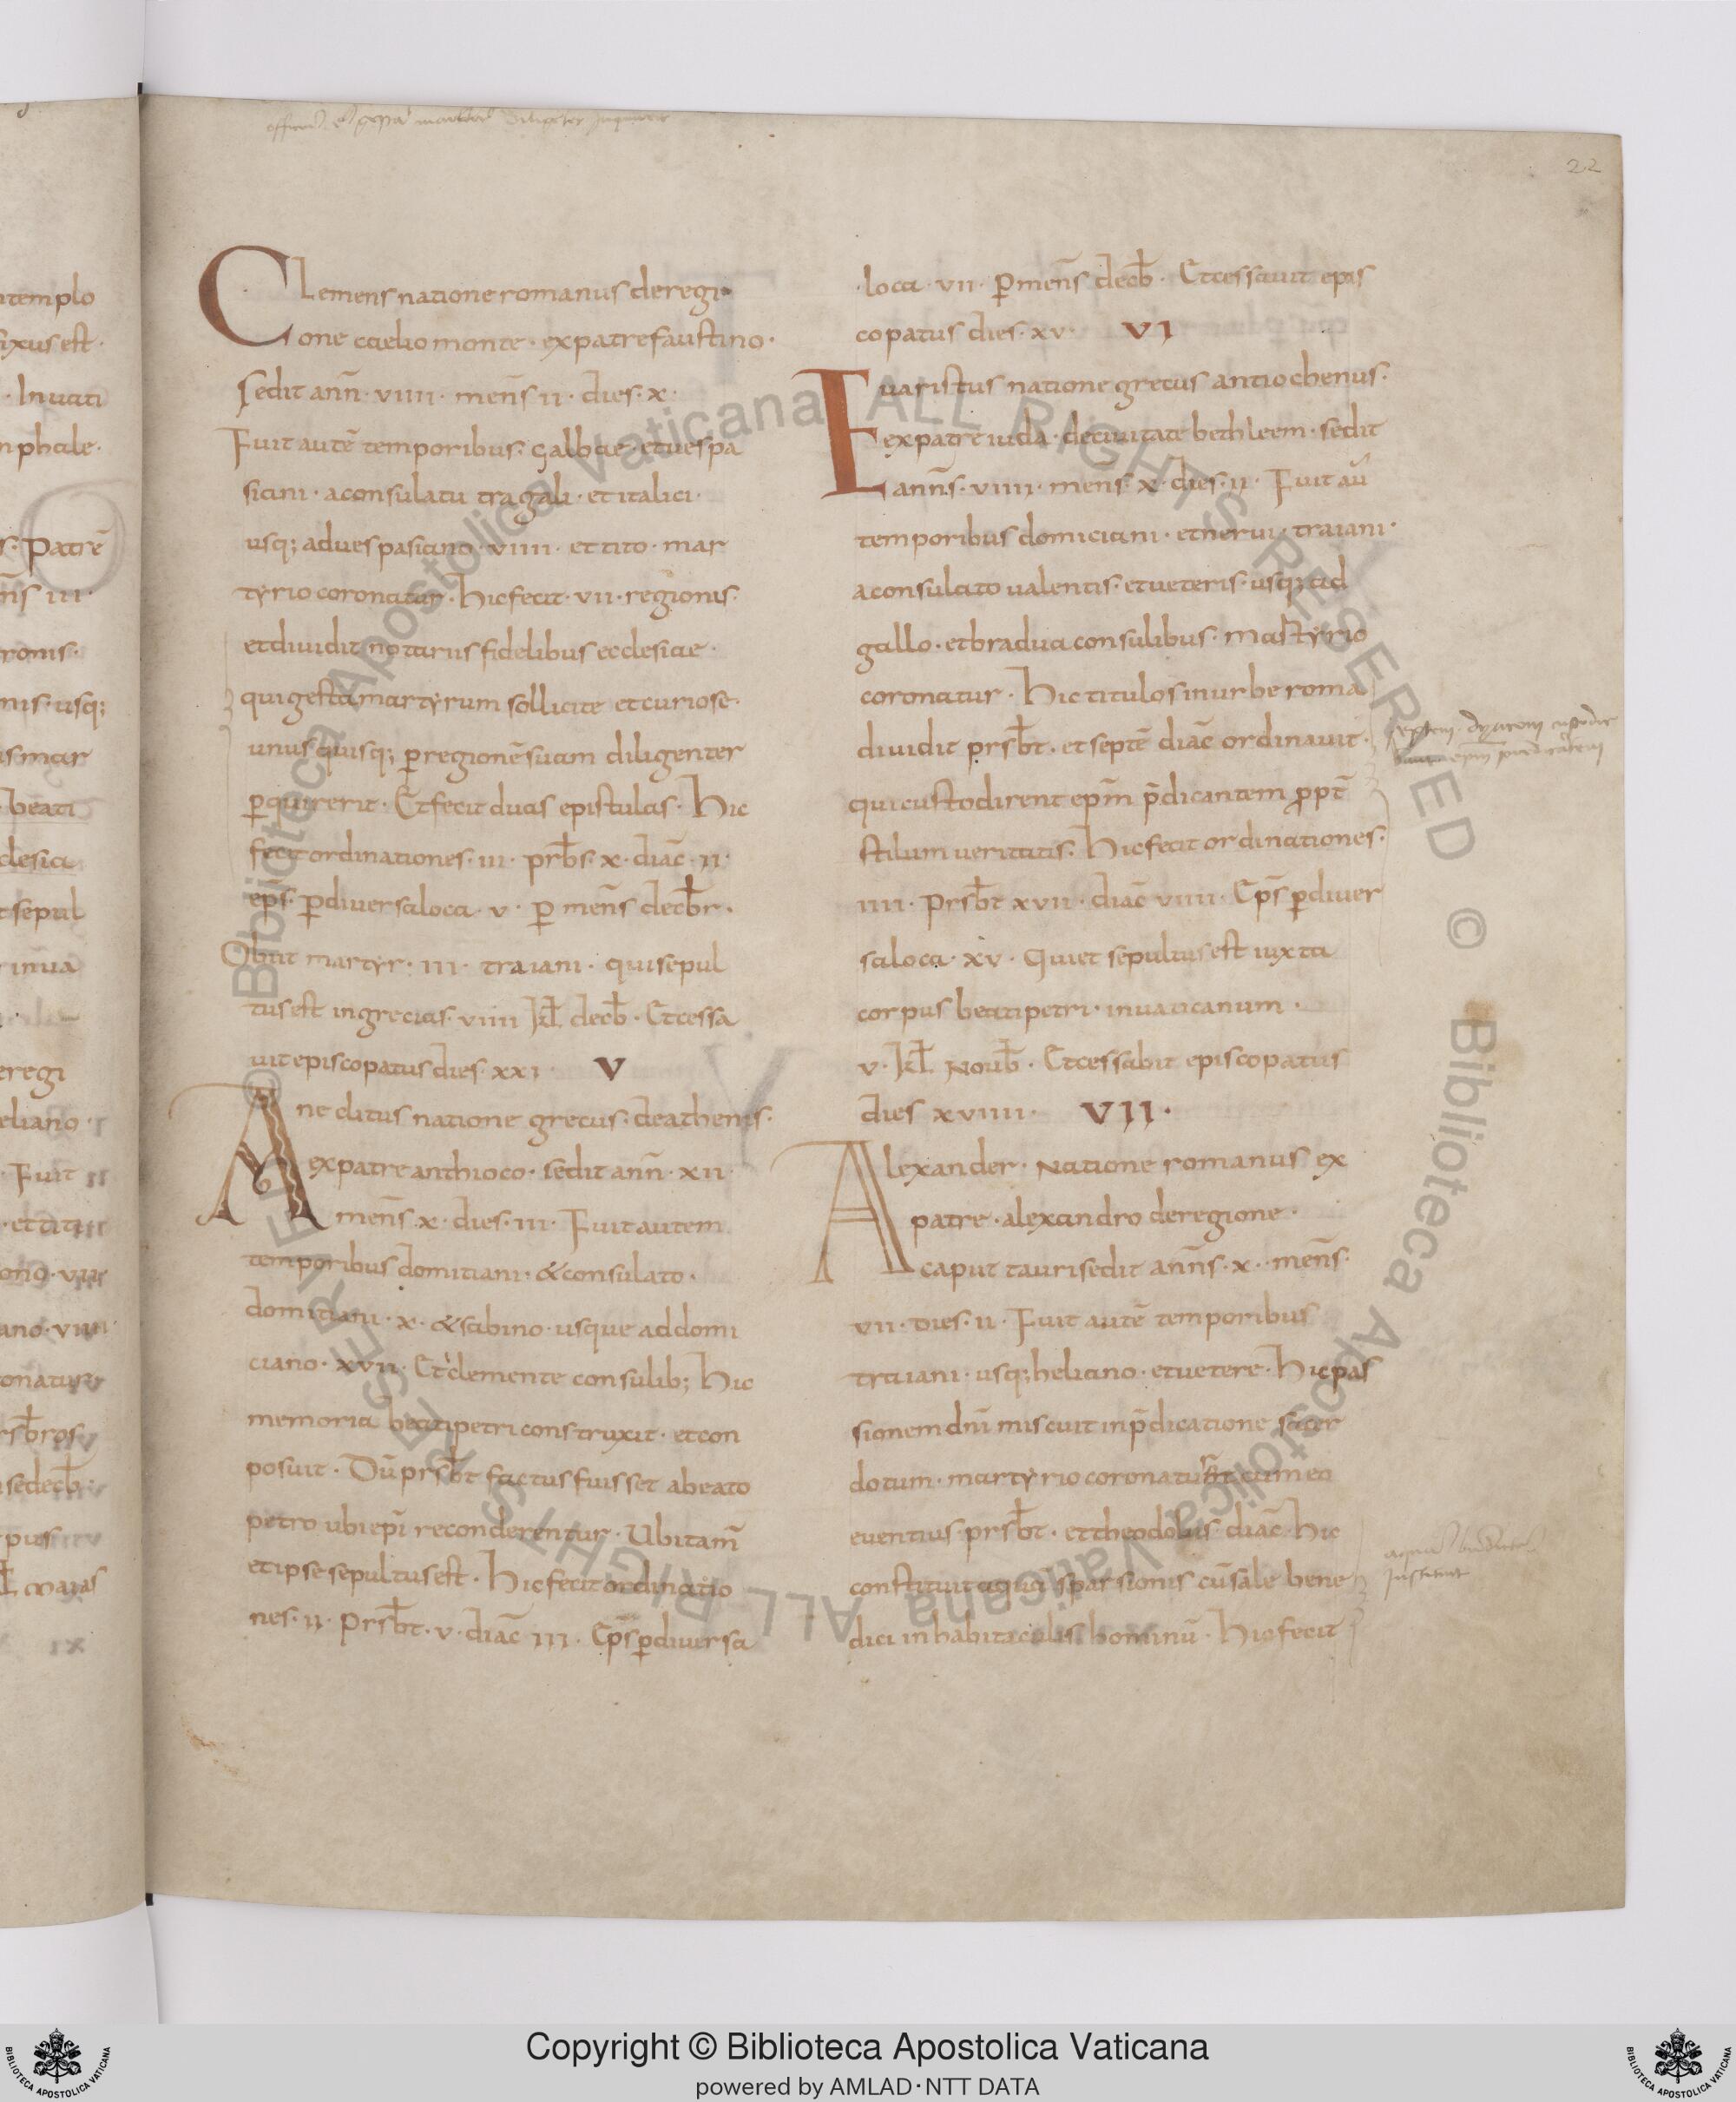 22
Clemens natione romanus de regi
one caelio monte · ex patre faustino ·
sedit ann̄ · viiii · mens̄ ii · dies · x ·
Fuit autē temporibus · galbae · et uespa
siani · a consulatu tragali · et italici ·
usq; ad uespasiano · viiii · et tito · mar
tyrio coronatur · hic fecit · vii · regionis ·
et diuidit notariis fidelibus ecclesiae ·
qui gesta martyrum sollicite et curiose ·
unus quisq; ꝑ regionē suam diligenter
ꝑquirerit · Et fecit duas epistulas · Hic
fecit ordinationes · iii · prb̄s · x · diac̄ · ii ·
ep̄s · ꝑ diuersa loca · v · ꝑ mens̄ decb̄r ·
Obiit martyr · iii · traiani · qui sepul
tus est in grecias · viiii kl̄ decb̄ · Et cessa
uit episcopatus dies · xxi · V
Aneclitus natione grecus · de athenis ·
ex patre anthioco · sedit ann̄ · xii ·
mens̄ · x · dies · iii · Fuit autem
temporibus domitiani · & consulato ·
domitiani · x · & sabino · usque ad domi
ciano · xvii · Et clemente consulib; Hic
memoria beati petri construxit · et con
posuit · Dū prsb̄t factus fuisset a beato
petro ubi epī reconderentur · Ubi tam̄
et ipse sepultus est · Hic fecit ordinatio
nes · ii · prsb̄t · v · diac̄ iii · Ep̄s ꝑ diuersa
loca · vii · ꝑ mens̄ decb̄ · Et cessauit epis
copatus dies · xv · VI
Euaristus natione grecus antiochenus ·
ex patre iuda · de ciuitate bethleem · sedit
ann̄s · viiii · mens̄ · x · dies · ii · Fuit aū
temporibus domiciani · et nerui · traiani ·
a consulato ualentis · et ueteris · usq; ad
gallo · et bradua consulibus · martyrio
coronatur · Hic titulos in urbe roma
diuidit prsb̄t · et septē diac̄ ordinauit ·
qui custodirent ep̄m p̄dicantem ꝓpt̄
stilum ueritatis · Hic fecit ordinationes ·
iiii · prsb̄t xvii · diac̄ viiii · Ep̄s ꝑ diuer
sa loca · xv · Qui et sepultus est iuxta
corpus beati petri · in uaticanum ·
v · kl̄ Noub̄ · Et cessabit episcopatus
dies xviiii · VII ·
Alexander · Natione romanus ex
patre · alexandro de regione ·
caput tauri sedit ann̄s · x · mens̄ ·
vii · dies · ii · Fuit autē temporibus
traiani · usq; heliano · et uetere · Hic pas
sionem dn̄i miscuit in p̄dicatione sacer
dotum · martyrio coronatur cum eo
euentius prsb̄t · et theodolus diac̄ · hic
constituit aqua sparsionis cū sale bene
dici in habitaculis hominū · Hic fecit
Copyright © Biblioteca Apostolica Vaticana
powered by AMLAD·NTT DATA